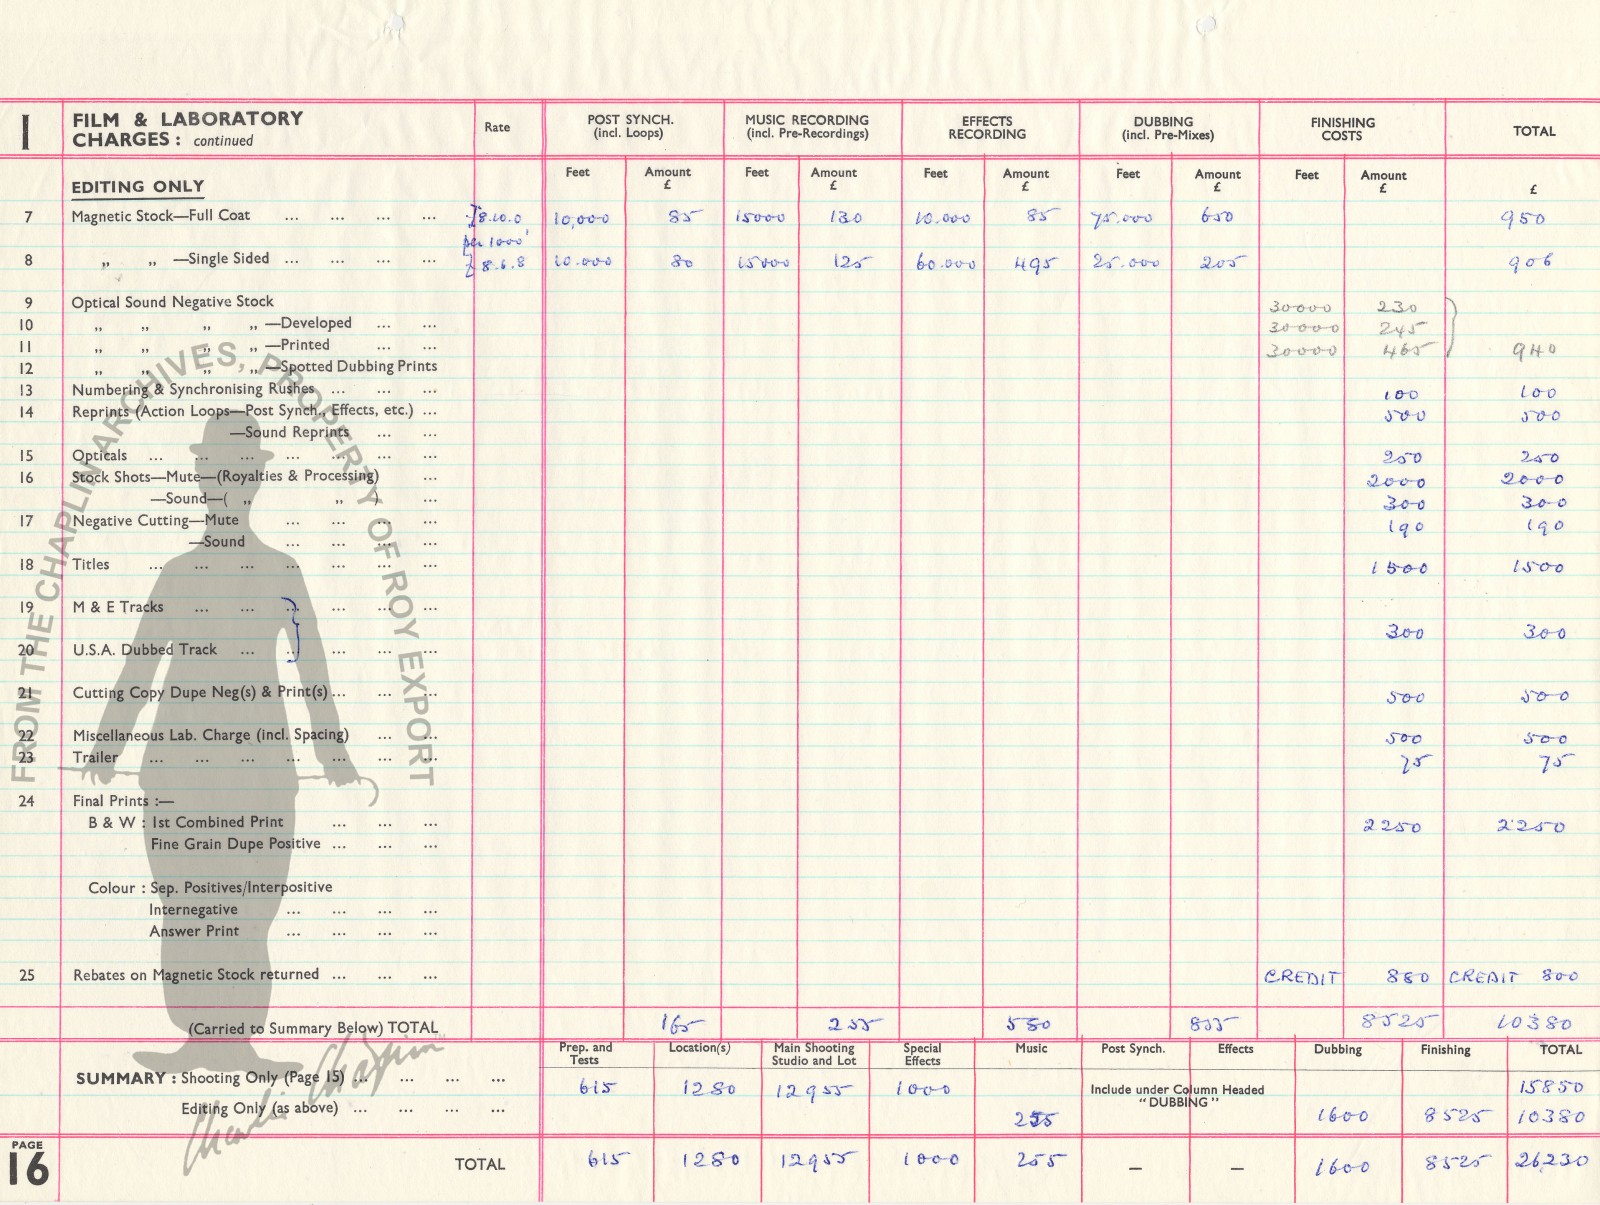 I FILM & LABORATORY CHARGES : continued Rate POST SYNCH. (incl. Loops) MUSIC RECORDING (incl. Pre-Recordings) EFFECTS RECORDING DUBBING (incl. Pre-Mixes) FINISHING COSTS TOTAL
EDITING ONLY Feet Amount £ Feet Amount £ Feet Amount £ Feet Amount £ Feet Amount £ £
7 Magnetic Stock—Full Coat ... ... ... ... 8.10.0 10,000 85 15000 130 10.000 85 75.000 650 950
per 1000'
8 „ „ —Single Sided ... ... ... ... 8.6.8 10.000 80 15000 125 60.000 495 25.000 205 906
9 Optical Sound Negative Stock 30000 230
10 „ „ „ „ —Developed ... ... 30000 245
11 „ „ „ „ —Printed ... ... 30000 465 940
12 „ „ „ „ —Spotted Dubbing Prints
13 Numbering & Synchronising Rushes ... ... ... 100 100
14 Reprints (Action Loops—Post Synch., Effects, etc.) ... 500 500
—Sound Reprints ... ...
15 Opticals ... ... ... ... ... ... ... 250 250
16 Stock Shots—Mute—(Royalties & Processing) ... 2000 2000
—Sound—( „ „ ) ... 300 300
17 Negative Cutting—Mute ... ... ... ... 190 190
—Sound ... ... ... ...
18 Titles ... ... ... ... ... ... ... 1500 1500
19 M & E Tracks ... ... ... ... ... ...
300 300
20 U.S.A. Dubbed Track ... ... ... ... ...
21 Cutting Copy Dupe Neg(s) & Print(s) ... ... ... 500 500
22 Miscellaneous Lab. Charge (incl. Spacing) ... ... 500 500
23 Trailer ... ... ... ... ... ... ... 75 75
24 Final Prints :—
B & W : 1st Combined Print ... ... ... 2250 2250
Fine Grain Dupe Positive ... ... ...
Colour : Sep. Positives/Interpositive
Internegative ... ... ... ...
Answer Print ... ... ... ...
25 Rebates on Magnetic Stock returned ... ... ... CREDIT 880 CREDIT 800
(Carried to Summary Below) TOTAL 165 255 580 855 8525 10380
Prep. and Tests Location(s) Main Shooting Studio and Lot Special Effects Music Post Synch. Effects Dubbing Finishing TOTAL
SUMMARY : Shooting Only (Page 15) ... ... ... ... 615 1280 12955 1000 Include under Column Headed "DUBBING" 15850
Editing Only (as above) ... ... ... ... 255 1600 8525 10380
PAGE 16 TOTAL 615 1280 12955 1000 255 — — 1600 8525 26,230
FROM THE CHAPLIN ARCHIVES, PROPERTY OF ROY EXPORT
Charlie Chaplin